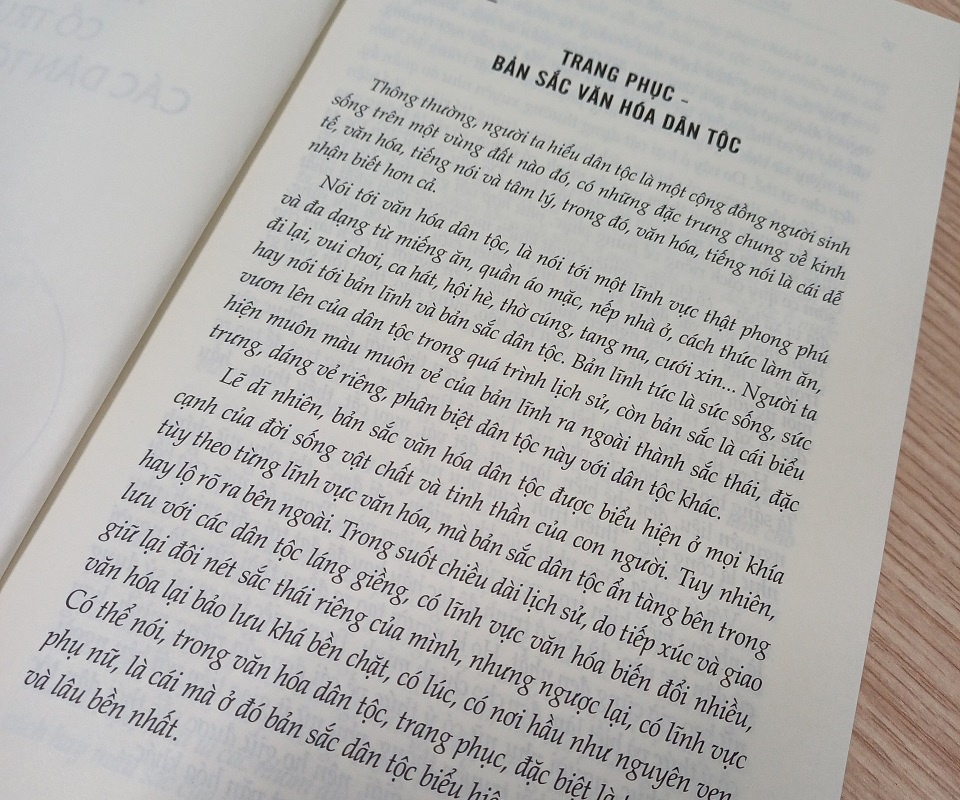 TRANG PHỤC -
BẢN SẮC VĂN HÓA DÂN TỘC
Thông thường, người ta hiểu dân tộc là một cộng đồng người sinh
sống trên một vùng đất nào đó, có những đặc trưng chung về kinh
tế, văn hóa, tiếng nói và tâm lý, trong đó, văn hóa, tiếng nói là cái dễ
nhận biết hơn cả.
Nói tới văn hóa dân tộc, là nói tới một lĩnh vực thật phong phú
và đa dạng từ miếng ăn, quần áo mặc, nếp nhà ở, cách thức làm ăn,
đi lại, vui chơi, ca hát, hội hè, thờ cúng, tang ma, cưới xin... Người ta
hay nói tới bản lĩnh và bản sắc dân tộc. Bản lĩnh tức là sức sống, sức
vươn lên của dân tộc trong quá trình lịch sử, còn bản sắc là cái biểu
hiện muôn màu muôn vẻ của bản lĩnh ra ngoài thành sắc thái, đặc
trưng, dáng vẻ riêng, phân biệt dân tộc này với dân tộc khác.
Lẽ dĩ nhiên, bản sắc văn hóa dân tộc được biểu hiện ở mọi khía
cạnh của đời sống vật chất và tinh thần của con người. Tuy nhiên,
tùy theo từng lĩnh vực văn hóa, mà bản sắc dân tộc ẩn tàng bên trong
hay lộ rõ ra bên ngoài. Trong suốt chiều dài lịch sử, do tiếp xúc và giao
lưu với các dân tộc láng giềng, có lĩnh vực văn hóa biến đổi nhiều,
giữ lại đôi nét sắc thái riêng của mình, nhưng ngược lại, có lĩnh vực
văn hóa lại bảo lưu khá bền chặt, có lúc, có nơi hầu như nguyên vẹn.
Có thể nói, trong văn hóa dân tộc, trang phục, đặc biệt là
phụ nữ, là cái mà ở đó bản sắc dân tộc biểu
và lâu bền nhất.